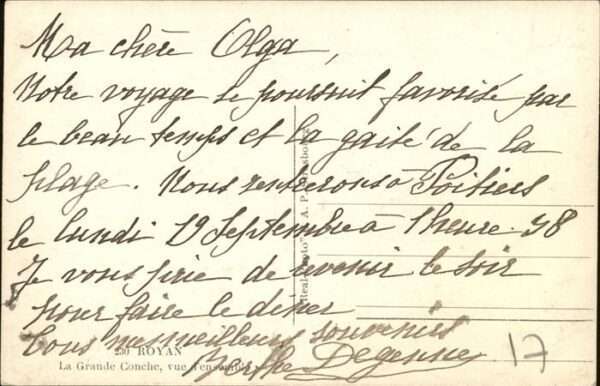 Ma chère Olga,
Notre voyage se poursuit favorisé par
le beau temps et la gaité de la
plage. Nous rentrerons à Poitiers
le lundi 19 Septembre à 1 heure 48
Je vous prie de venir le soir
pour faire le diner
Tous mes meilleurs souvenirs
Degenne
230 ROYAN
La Grande Conche, vue d'ensemble
17